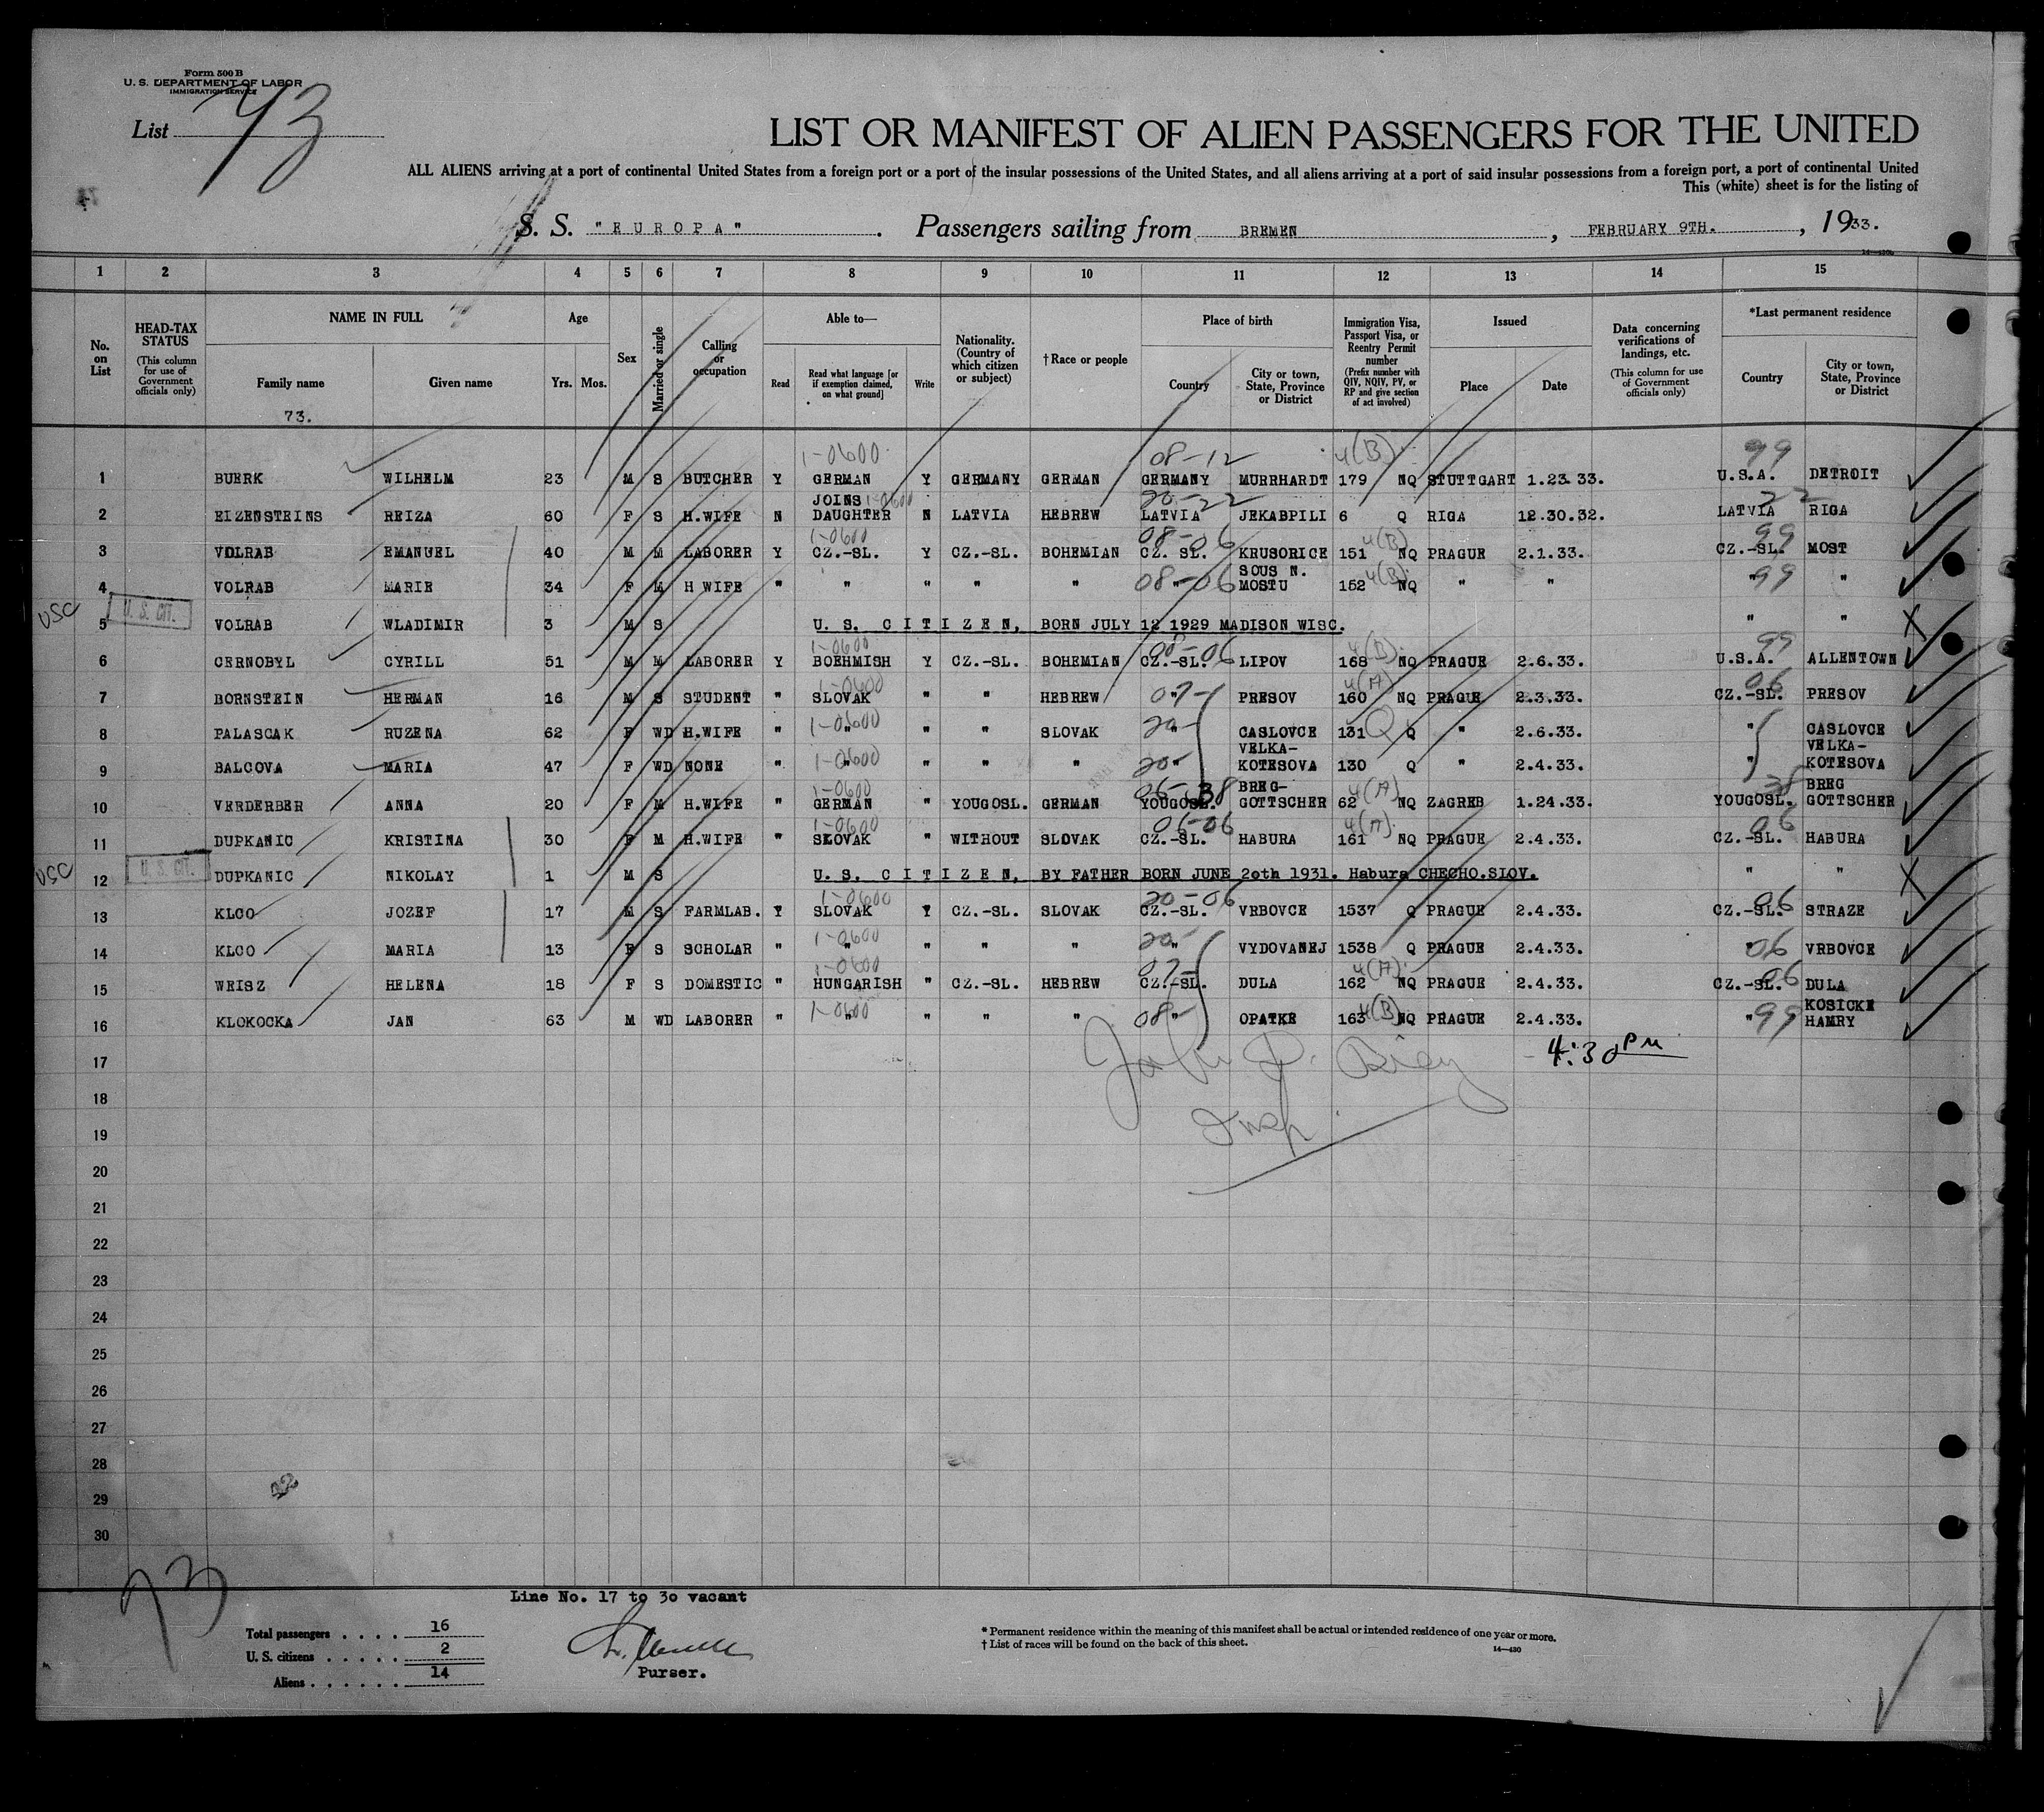 Form 500 B
U. S. DEPARTMENT OF LABOR
IMMIGRATION SERVICE
List 73
LIST OR MANIFEST OF ALIEN PASSENGERS FOR THE UNITED
ALL ALIENS arriving at a port of continental United States from a foreign port or a port of the insular possessions of the United States, and all aliens arriving at a port of said insular possessions from a foreign port, a port of continental United
This (white) sheet is for the listing of
S. S. "EUROPA" . Passengers sailing from BREMEN , FEBRUARY 9TH. , 1933.
1 2 3 4 5 6 7 8 9 10 11 12 13 14 15
No. on List
HEAD-TAX STATUS
(This column for use of Government officials only)
NAME IN FULL
Family name Given name
73.
Age
Yrs. Mos.
Sex
Married or single
Calling or occupation
Able to—
Read
Read what language [or if exemption claimed, on what ground]
Write
Nationality. (Country of which citizen or subject)
† Race or people
Place of birth
Country
City or town, State, Province or District
Immigration Visa, Passport Visa, or Reentry Permit number
(Prefix number with QIV, NQIV, PV, or RP and give section of act involved)
Issued
Place Date
Data concerning verifications of landings, etc.
(This column for use of Government officials only)
*Last permanent residence
Country
City or town, State, Province or District
1-0600 08-12 4(B) 99
1 BUERK WILHELM 23 M S BUTCHER Y GERMAN Y GERMANY GERMAN GERMANY MURRHARDT 179 NQ STUTTGART 1.23.33. U.S.A. DETROIT
JOINS 1-0600 20-22 22
2 EIZENSTEINS REIZA 60 F S H.WIFE N DAUGHTER N LATVIA HEBREW LATVIA JEKABPILI 6 Q RIGA 12.30.32. LATVIA RIGA
1-0600 08-06 4(B) 99
3 VOLRAB EMANUEL 40 M M LABORER Y CZ.-SL. Y CZ.-SL. BOHEMIAN CZ. SL. KRUSORICE 151 NQ PRAGUE 2.1.33. CZ.-SL. MOST
SOUS N. 4(B)
4 VOLRAB MARIE 34 F M H WIFE " " " " " 08-06 " MOSTU 152 NQ " " " 99 "
USC U. S. CIT.
5 VOLRAB WLADIMIR 3 M S U. S. CITIZEN, BORN JULY 12 1929 MADISON WISC. " " X
1-0600 08-06 4(B) 99
6 CERNOBYL CYRILL 51 M M LABORER Y BOEHMISH Y CZ.-SL. BOHEMIAN CZ.-SL. LIPOV 168 NQ PRAGUE 2.6.33. U.S.A. ALLENTOWN
1-0600 4(A) 06
7 BORNSTEIN HERMAN 16 M S STUDENT " SLOVAK " " HEBREW 07- " PRESOV 160 NQ PRAGUE 2.3.33. CZ.-SL. PRESOV
1-0600
8 PALASCAK RUZENA 62 F WD H.WIFE " " " " SLOVAK 20- " CASLOVCE 131 Q Q " 2.6.33. " CASLOVCE
1-0600 VELKA- VELKA-
9 BALCOVA MARIA 47 F WD NONE " " " " " 20- " KOTESOVA 130 Q " 2.4.33. " KOTESOVA
1-0600 06-38 BREG- 4(A) 38 BREG
10 VERDERBER ANNA 20 F M H.WIFE " GERMAN " YOUGOSL. GERMAN YOUGOSL. GOTTSCHER 62 NQ ZAGREB 1.24.33. YOUGOSL. GOTTSCHER
1-0600 06-06 4(A) 06
11 DUPKANIC KRISTINA 30 F M H.WIFE " SLOVAK " WITHOUT SLOVAK CZ.-SL. HABURA 161 NQ PRAGUE 2.4.33. CZ.-SL. HABURA
USC U. S. CIT.
12 DUPKANIC NIKOLAY 1 M S U. S. CITIZEN, BY FATHER BORN JUNE 2oth 1931. Habura CHECHO.SLOV. " " X
1-0600 20-06 06
13 KLCO JOZEF 17 M S FARMLAB. Y SLOVAK Y CZ.-SL. SLOVAK CZ.-SL. VRBOVCE 1537 Q PRAGUE 2.4.33. CZ.-SL. STRAZE
1-0600
14 KLCO MARIA 13 F S SCHOLAR " " " " " 20- " VYDOVANEJ 1538 Q PRAGUE 2.4.33. " 06 VRBOVCE
1-0600 07- 4(A) 06
15 WEISZ HELENA 18 F S DOMESTIC " HUNGARISH " CZ.-SL. HEBREW CZ.-SL. DULA 162 NQ PRAGUE 2.4.33. CZ.-SL. DULA
1-0600 4(B) KOSICKE
16 KLOKOCKA JAN 63 M WD LABORER " " " " " 08- " OPATKE 163 NQ PRAGUE 2.4.33. " 99 HAMRY
17 4:30 PM
18
19 Insp
20
21
22
23
24
25
26
27
28
29
30
73
Line No. 17 to 3o vacant
Total passengers . . . . 16
U. S. citizens . . . . . 2
Aliens . . . . . . 14
Purser.
* Permanent residence within the meaning of this manifest shall be actual or intended residence of one year or more.
† List of races will be found on the back of this sheet.
14—430